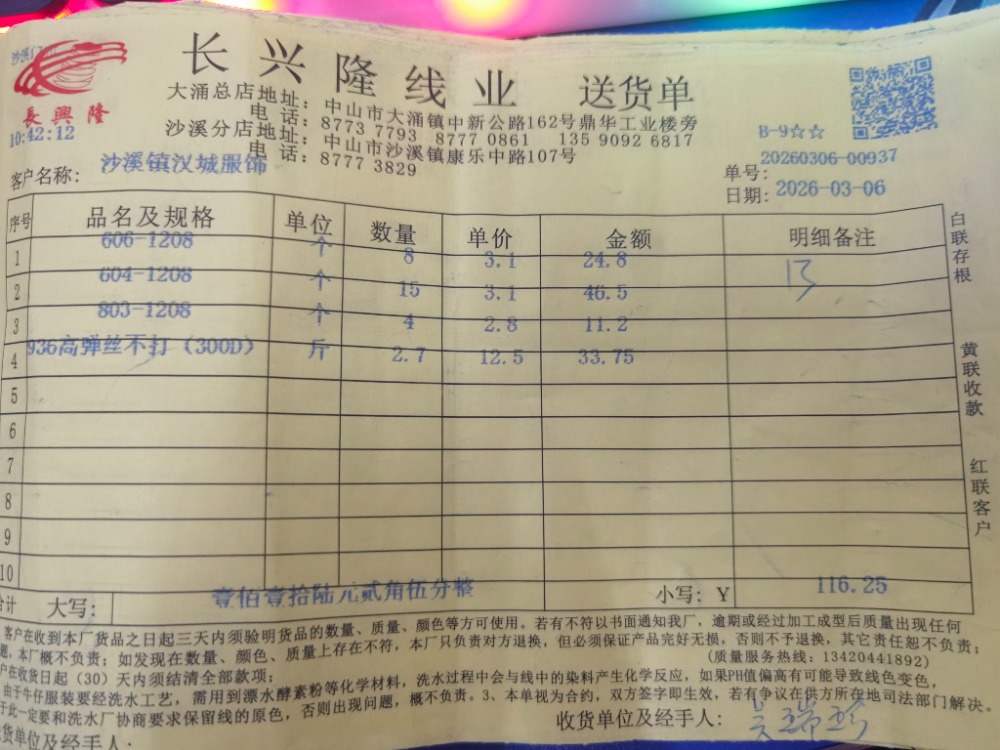 長興隆
10:42:12
长兴隆线业 送货单
大涌总店地址：中山市大涌镇中新公路162号鼎华工业楼旁
电话：8773 7793 8777 0861 135 9092 6817
沙溪分店地址：中山市沙溪镇康乐中路107号
电话：8777 3829
B-9☆☆
客户名称：沙溪镇汉城服饰
单号：20260306-00937
日期：2026-03-06
序号 品名及规格 单位 数量 单价 金额 明细备注
1 606-1208 个 8 3.1 24.8
2 604-1208 个 15 3.1 46.5
3 803-1208 个 4 2.8 11.2
4 936高弹丝不打（300D） 斤 2.7 12.5 33.75
5
6
7
8
9
10
合计 大写：壹佰壹拾陆元贰角伍分整 小写：Y 116.25
白联存根
黄联收款
红联客户
客户在收到本厂货品之日起三天内须验明货品的数量、质量、颜色等方可使用。若有不符以书面通知我厂，逾期或经过加工成型后质量出现任何
题，本厂概不负责；如发现在数量、颜色、质量上存在不符，本厂只负责对方退换，但必须保证产品完好无损，否则不予退换，其它责任恕不负责；
（质量服务热线：13420441892）
户在收货日起（30）天内须结清全部款项；
由于牛仔服装要经洗水工艺，需用到漂水酵素粉等化学材料，洗水过程中会与线中的染料产生化学反应，如果PH值偏高有可能导致线色变色，
于此一定要和洗水厂协商要求保留线的原色，否则出现问题，概不负责。3、本单视为合约，双方签字即生效，若有争议在供方所在地司法部门解决。
货单位及经手人：
收货单位及经手人：